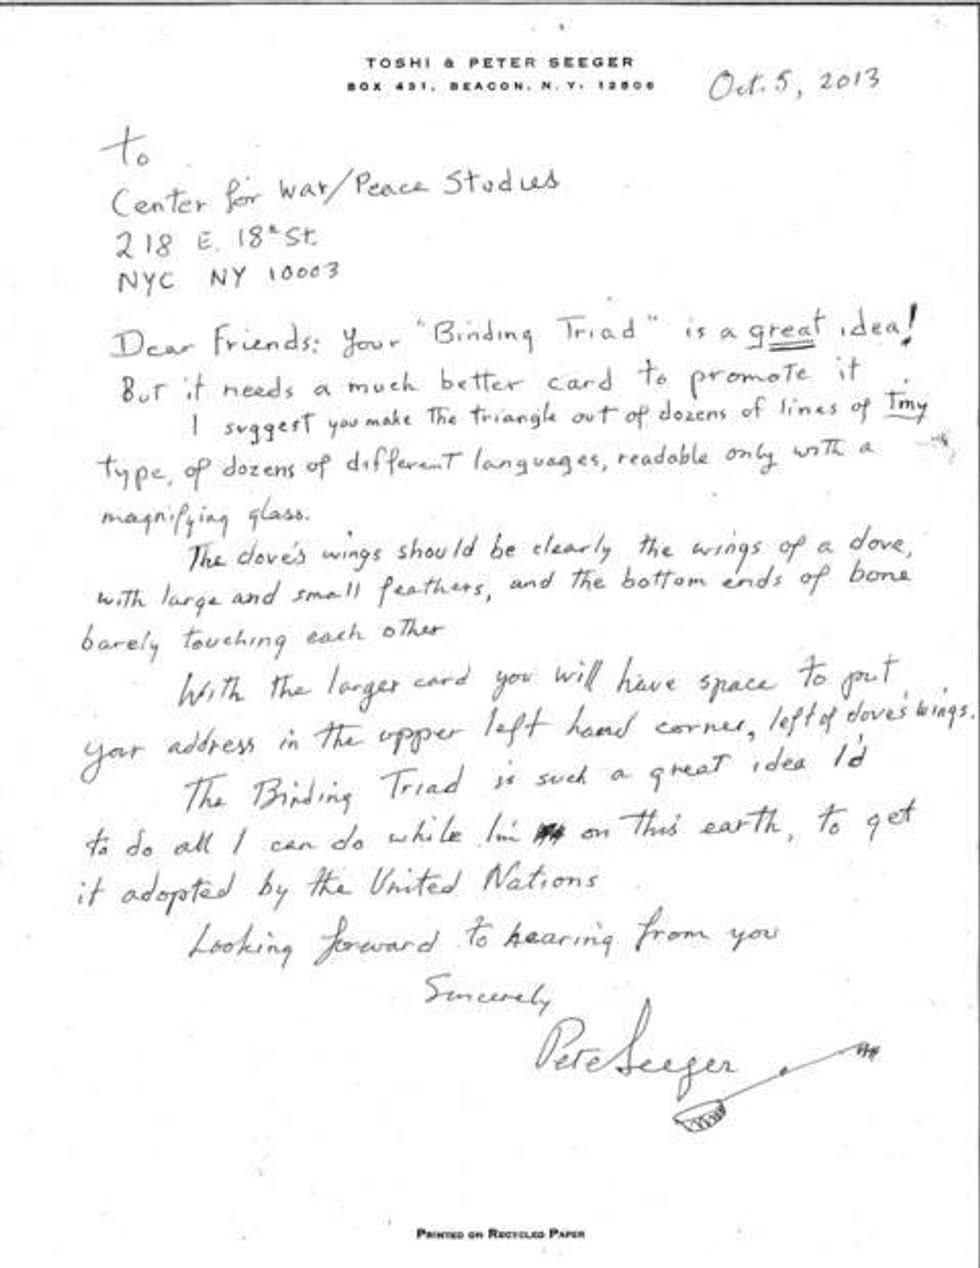 TOSHI & PETER SEEGER
BOX 431, BEACON, N. Y. 12508
Oct. 5, 2013
To
Center for War/Peace Studies
218 E. 18th St.
NYC NY 10003
Dear Friends: Your "Binding Triad" is a great idea!
But it needs a much better card to promote it
I suggest you make the triangle out of dozens of lines of tiny
type, of dozens of different languages, readable only with a
magnifying glass.
The dove's wings should be clearly the wings of a dove,
with large and small feathers, and the bottom ends of bone
barely touching each other
With the larger card you will have space to put
your address in the upper left hand corner, left of dove's wings.
The Binding Triad is such a great idea I'd
to do all I can do while I'm on this earth, to get
it adopted by the United Nations
Looking forward to hearing from you
Sincerely
Pete Seeger
PRINTED ON RECYCLED PAPER